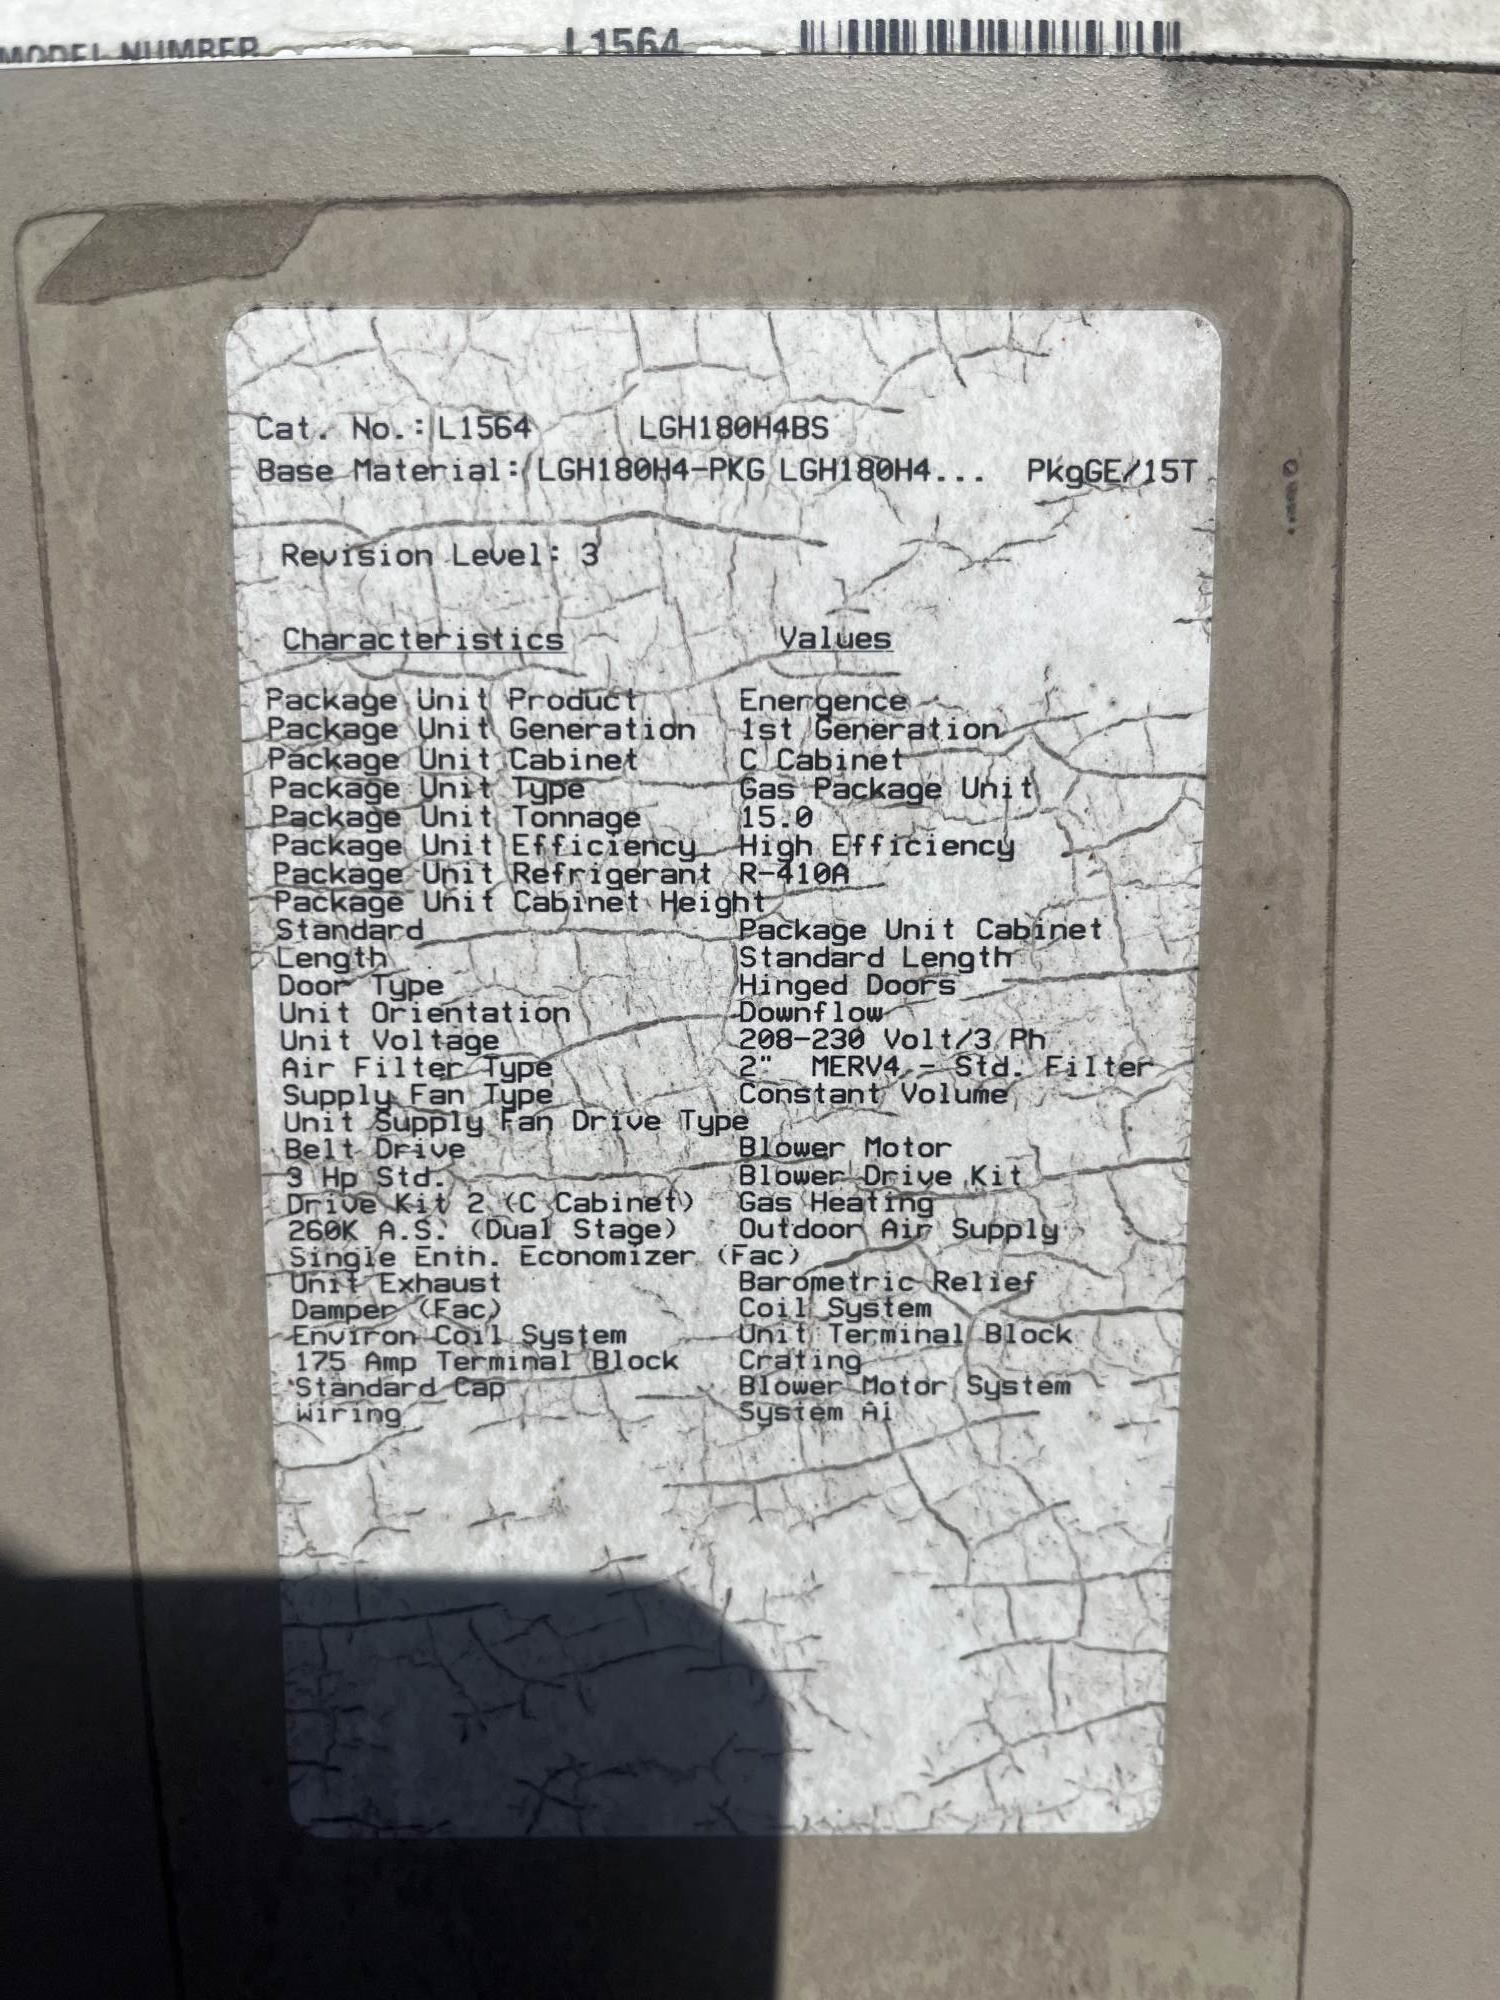 MODEL NUMBER L1564
Cat. No.: L1564 LGH180H4BS
Base Material: LGH180H4-PKG LGH180H4... PkgGE/15T
Revision Level: 3
Characteristics Values
Package Unit Product Energence
Package Unit Generation 1st Generation
Package Unit Cabinet C Cabinet
Package Unit Type Gas Package Unit
Package Unit Tonnage 15.0
Package Unit Efficiency High Efficiency
Package Unit Refrigerant R-410A
Package Unit Cabinet Height
Standard Package Unit Cabinet
Length Standard Length
Door Type Hinged Doors
Unit Orientation Downflow
Unit Voltage 208-230 Volt/3 Ph
Air Filter Type 2" MERV4 - Std. Filter
Supply Fan Type Constant Volume
Unit Supply Fan Drive Type
Belt Drive Blower Motor
3 Hp Std. Blower Drive Kit
Drive Kit 2 (C Cabinet) Gas Heating
260K A.S. (Dual Stage) Outdoor Air Supply
Single Enth. Economizer (Fac)
Unit Exhaust Barometric Relief
Damper (Fac) Coil System
Environ Coil System Unit Terminal Block
175 Amp Terminal Block Crating
Standard Cap Blower Motor System
Wiring System Ai